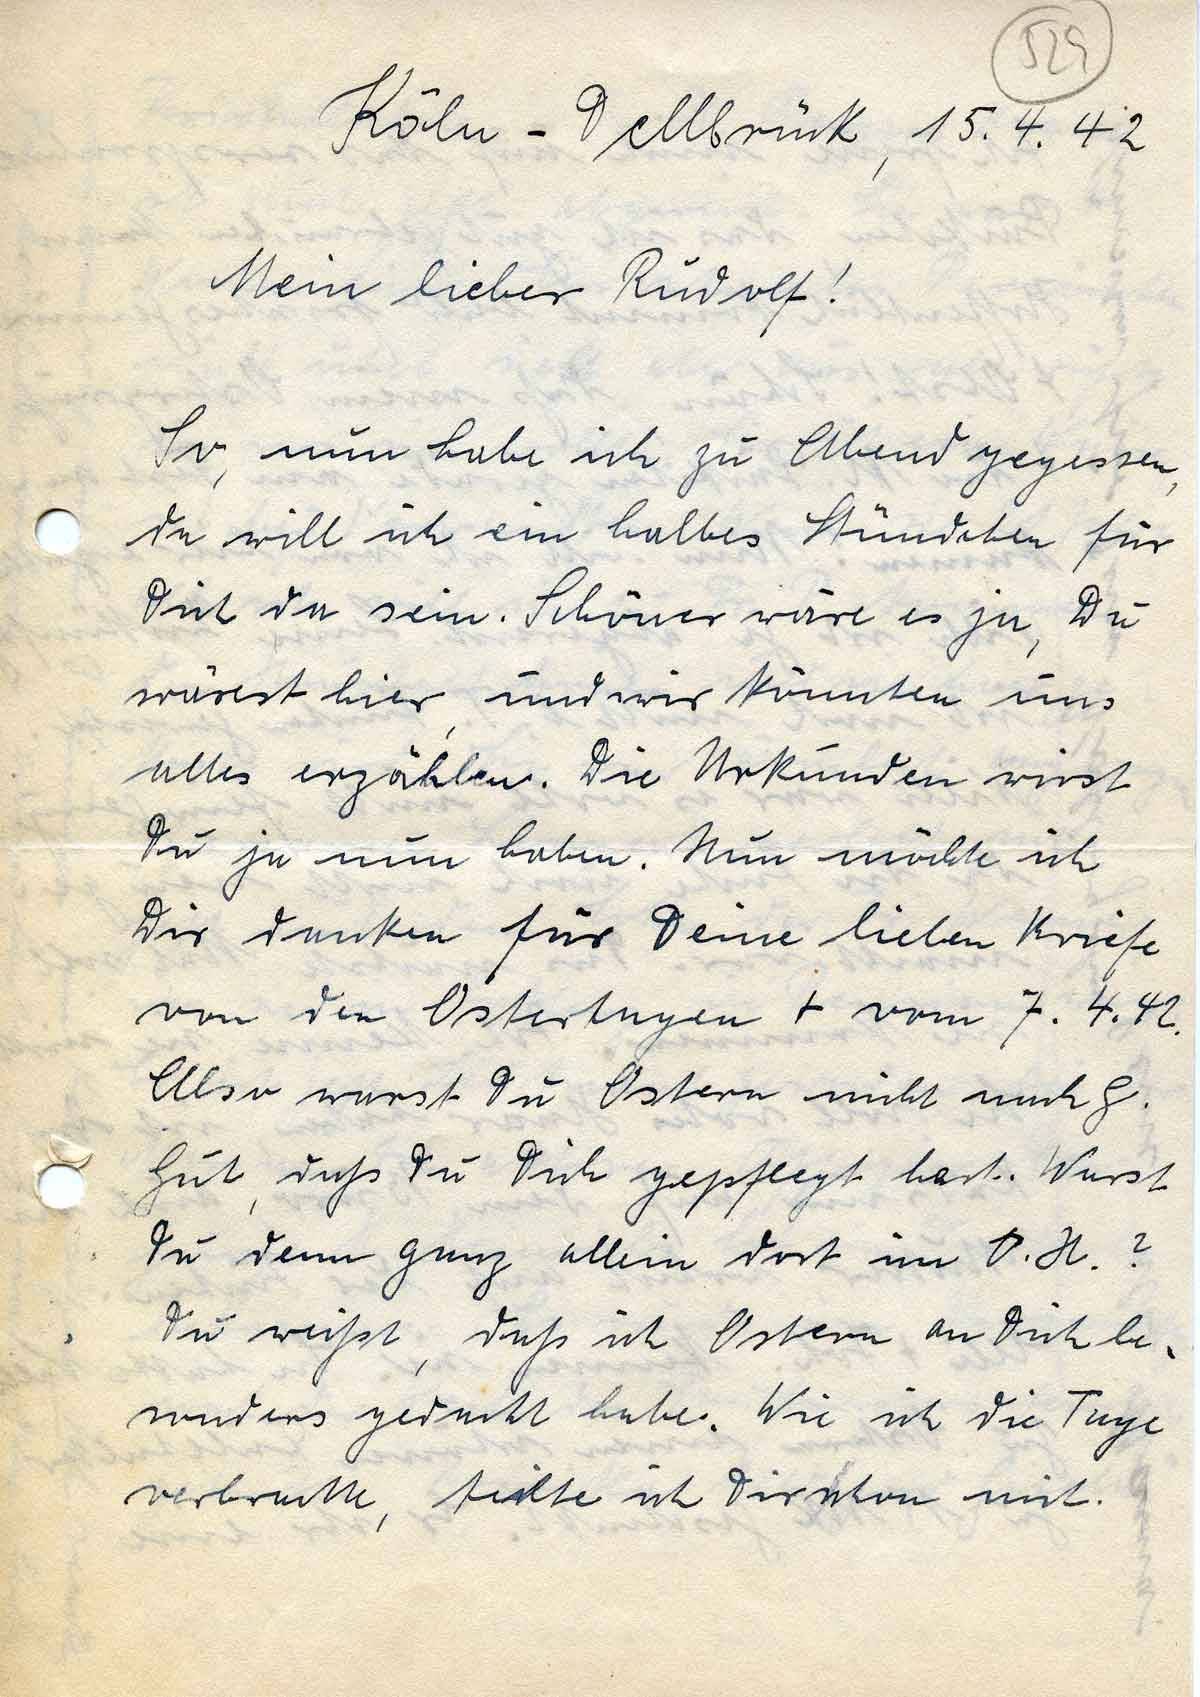 529
Köln - Dellbrück, 15. 4. 42
Mein lieber Rudolf!
So, nun habe ich zu Abend gegessen,
da will ich ein halbes Stündchen für
Dich da sein. Schöner wäre es ja, Du
wärest hier, und wir könnten uns
alles erzählen. Die Urkunden wirst
Du ja nun haben. Nun möchte ich
Dir danken für Deine lieben Briefe
von den Ostertagen + vom 7. 4. 42.
Also warst Du Ostern nicht nach G.
Gut, daß Du Dich gepflegt hast. Warst
Du denn ganz allein dort im P. H.?
Du weißt, daß ich Ostern an Dich be-
sonders gedacht habe. Wie ich die Tage
verbrachte, teilte ich Dir schon mit.